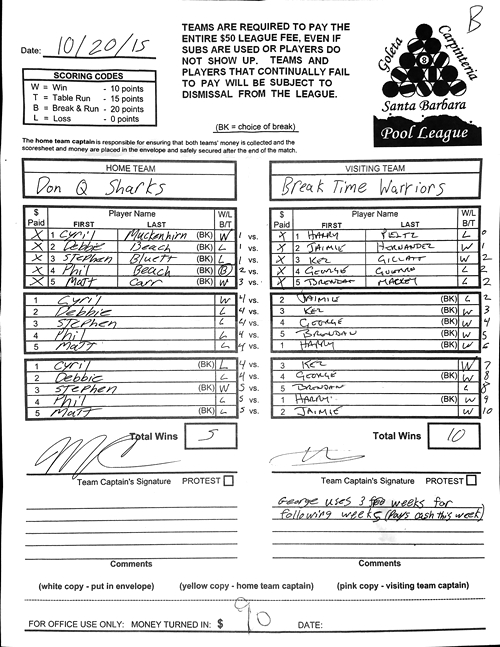 B
Date: 10/20/15
TEAMS ARE REQUIRED TO PAY THE
ENTIRE $50 LEAGUE FEE, EVEN IF
SUBS ARE USED OR PLAYERS DO
NOT SHOW UP. TEAMS AND
PLAYERS THAT CONTINUALLY FAIL
TO PAY WILL BE SUBJECT TO
DISMISSAL FROM THE LEAGUE.
(BK = choice of break)
SCORING CODES
W = Win - 10 points
T = Table Run - 15 points
B = Break & Run - 20 points
L = Loss - 0 points
Goleta Carpinteria
8
Santa Barbara
Pool League
The home team captain is responsible for ensuring that both teams' money is collected and the
scoresheet and money are placed in the envelope and safely secured after the end of the match.
HOME TEAM VISITING TEAM
Don Q Sharks Break Time Warriors
$ Paid Player Name FIRST LAST W/L B/T $ Paid Player Name FIRST LAST W/L B/T
X 1 Cyril Muckenhirn (BK) W 1 vs. X 1 HARRY L 0
X 2 Debbie Beach (BK) L 1 vs. X 2 JAIMIE HERNANDEZ W 1
X 3 Stephen Bluett (BK) L 1 vs. X 3 KEZ GILLATT W 2
X 4 Phil Beach (BK) B 2 vs. X 4 GEORGE L 2
X 5 Matt Carr (BK) W 3 vs. X 5 BRENDAN MACKEY L 2
1 Cyril W 4 vs. 2 JAIMIE (BK) L 2
2 Debbie L 4 vs. 3 KEZ (BK) W 3
3 Stephen L 4 vs. 4 GEORGE (BK) W 4
4 Phil L 4 vs. 5 BRENDAN (BK) W 5
5 Matt L 4 vs. 1 HARRY (BK) W 6
1 Cyril (BK) L 4 vs. 3 KEZ W 7
2 Debbie L 4 vs. 4 GEORGE (BK) W 8
3 Stephen (BK) W 5 vs. 5 BRENDAN L 8
4 Phil L 5 vs. 1 HARRY (BK) W 9
5 Matt (BK) L 5 vs. 2 JAIMIE W 10
Total Wins 5 Total Wins 10
Team Captain's Signature PROTEST Team Captain's Signature PROTEST
George uses 3 weeks for
following weeks (Pays cash this week)
Comments Comments
(white copy - put in envelope) (yellow copy - home team captain) (pink copy - visiting team captain)
FOR OFFICE USE ONLY: MONEY TURNED IN: $ 90 DATE: